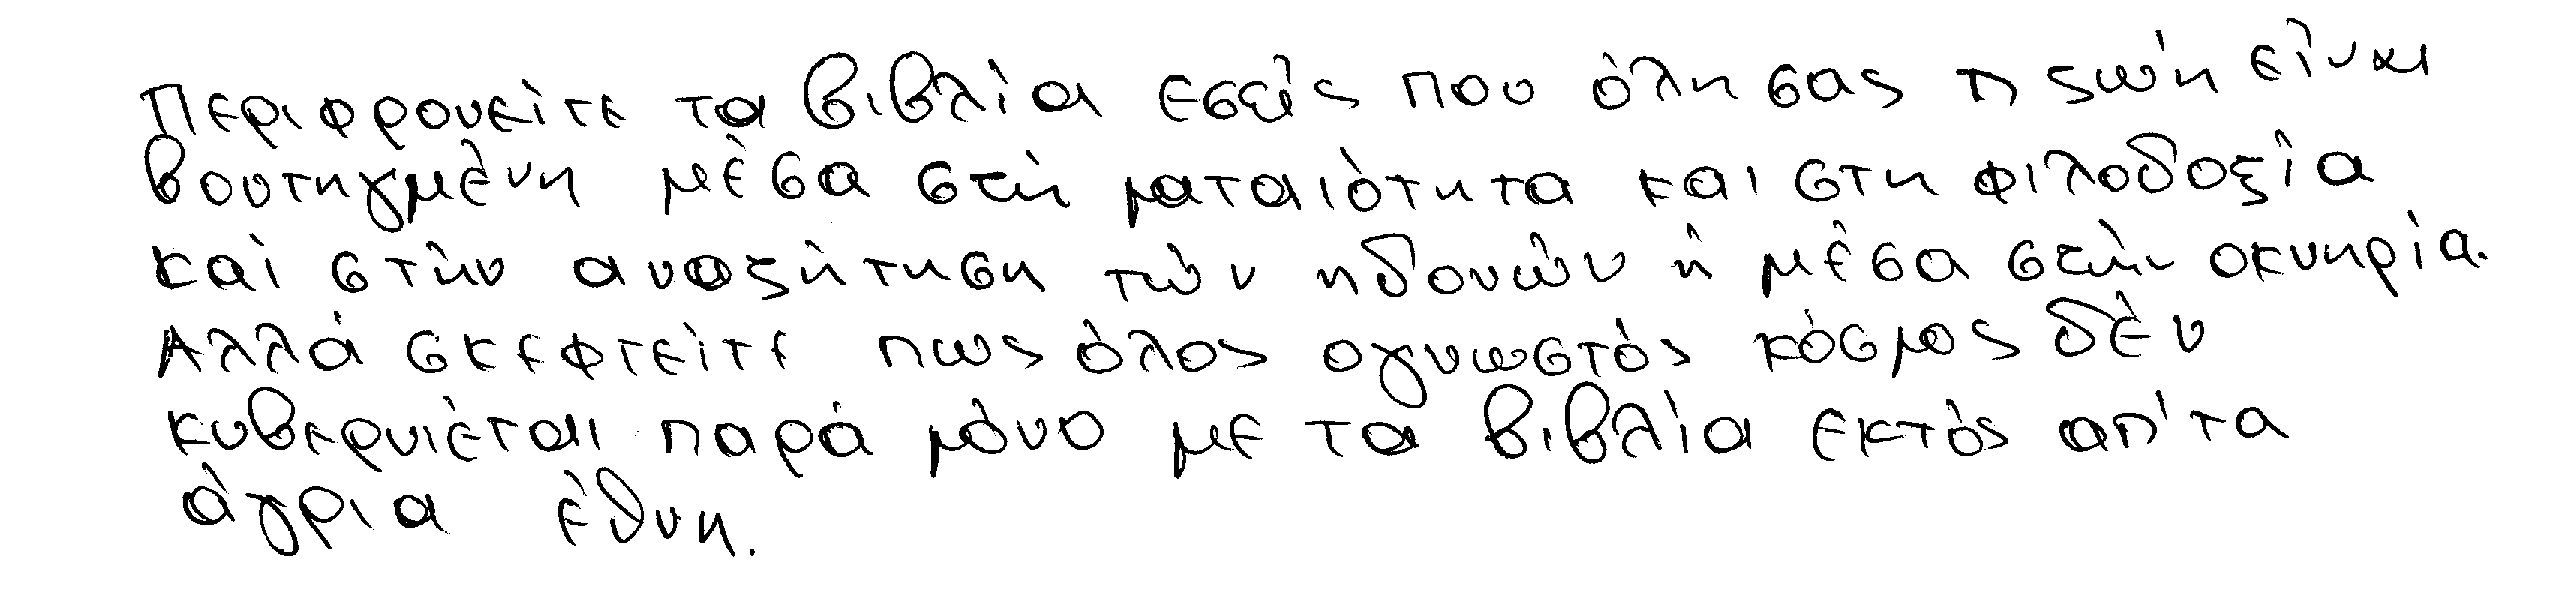 Περιφρονείτε τα βιβλία εσείς που όλη σας η ζωή είναι
βουτηγμένη μέσα στή ματαιότητα και στη φιλοδοξία
καί στήν αναζήτηση τών ηδονών ή μέσα στήν οκνηρία.
Αλλά σκεφτείτε πως όλος ογνωστός κόσμος δέν
κυβερνιέται παρά μόνο με τα βιβλία εκτός απ' τα
άγρια έθνη.